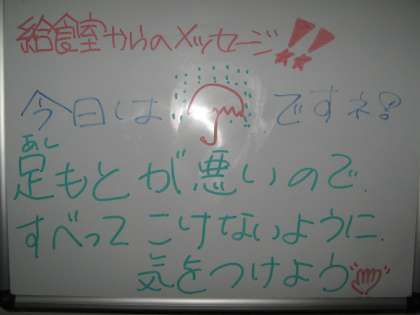 給食室からのメッセージ!!
今日は ですネ!
あし
足もとが悪いので、
すべって こけないように、
気をつけよう